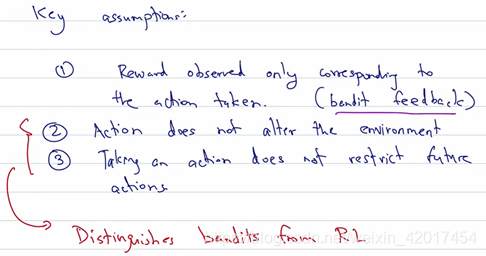 Key assumptions:
① Reward observed only corresponding to
the action taken. (bandit feedback)
② Action does not alter the environment
③ Taking an action does not restrict future
actions
Distinguishes bandits from RL